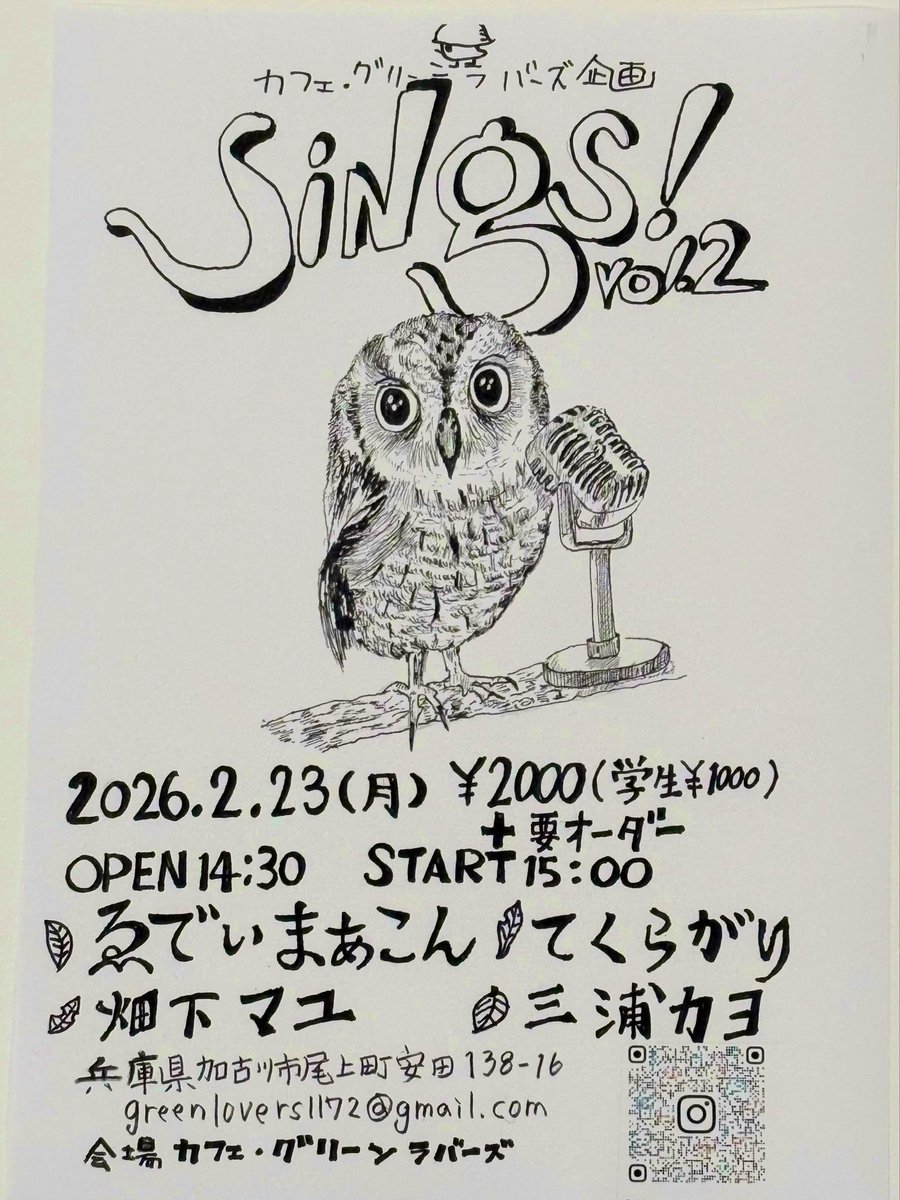 カフェ・グリーンラバーズ企画
SiNgS!
vol.2
2026.2.23(月) ¥2000(学生¥1000)
+要オーダー
OPEN14:30 START15:00
ゑでぃまぁこん てくらがり
畑下マユ 三浦カヨ
兵庫県加古川市尾上町安田138-16
greenlovers1172@gmail.com
会場 カフェ・グリーンラバーズ